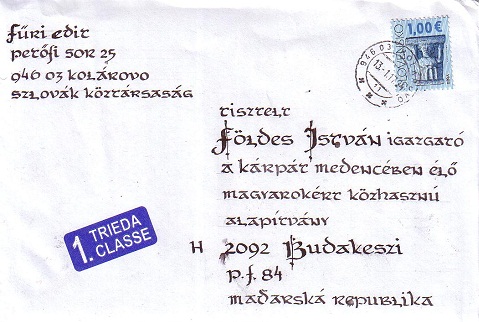 Fűri Edit
Petőfi sor 25
946 03 Kolárovo
Szlovák Köztársaság
1,00 €
SLOVENSKO
946 03
Tisztelt
Földes István igazgató
a Kárpát medencében élő
magyarokért közhasznú
alapítvány
H 2092 Budakeszi
p.f. 84
Maďarská republika
1. TRIEDA
CLASSE